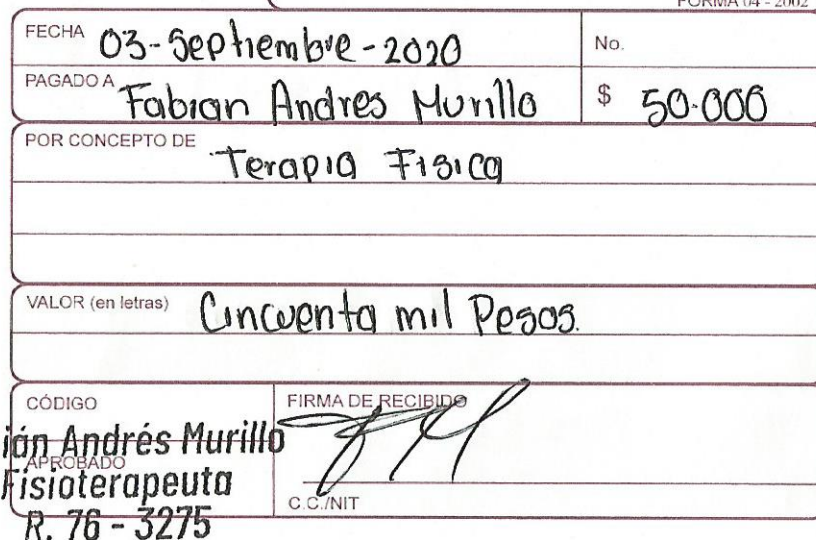 FORMA 04 - 2002
FECHA 03-Septiembre-2020
No.
PAGADO A Fabian Andres Murillo
$ 50.000
POR CONCEPTO DE Terapia Fisica
VALOR (en letras) Cincuenta mil Pesos.
CÓDIGO
FIRMA DE RECIBIDO
ián Andrés Murillo
APROBADO
Fisioterapeuta
C.C./NIT
R. 76 - 3275